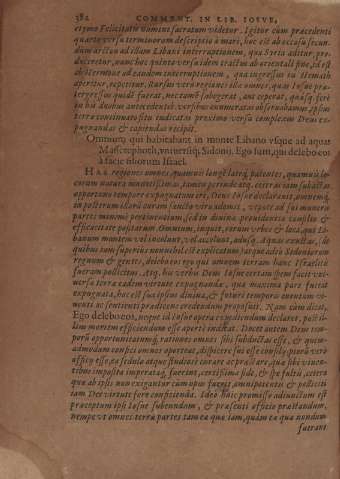 382 COMMENT. IN LIB. IOSVE,
etsmo Felicitatis nomini sacratum videtur. Igitur cùm præcedenti
quarto versu terminorum descriptio à mari, hoc est ab occasu secun-
dum arctou ad istam Libani interruptionem, qua Syria aditur, pro-
duceretur, nunc hoc quinto versu idem tractus ab orientali fine, id est
ab Hermone ad eandem interruptionem, qua ingressus in Hemath
aperitur, repetitur. Rursus verò regiones illæ omnes, quas Iosue præ-
tergressus quidē fuerat, nec tamē subegerat, aut ceperat, quæque ferè
in his duobus antecedentib. versibus enumeratas observabamus, ipsius
terræ continuatio situ indicatas proximo versu complexus Deus ex-
pugnandas & capiendas recipit.
Omnium qui habitabant in monte Libano vsque ad aquas
Masrephoth, vniuersíq; Sidonij. Ego sum, qui delebo eos
à facie filiorum Israel.
HAS regiones omnes, quamuis longè latéq; patentes, quamuis lo-
corum natura munitissimas, tamen perinde atq; ceteras iam subactas
opportuno tempore expugnatum iri, Deus Iosue declarat, omnemq;
in posterum illarū curam sancto viro adimit, vtpote ad sui muneris
partes minimè pertinentium, sed in divina providentia consilio &
efficacitate positarum. Omnium, inquit, eorum vrbes & loca, qui Li-
banum montem vel incolunt, vel accolunt, adusq; Aquas exustas, (de
quibus iam superius nonnihil est explicatum) atque adeo Sidoniorum
regnum & gentes, delebo eos ego qui omnem terram hanc Israëlitis
fueram pollicitus. Atq; his verbis Deus Iosue certam spem facit vni-
uersæ terræ eadem virtute expugnandæ, qua maxima pars fuisset
expugnata, hoc est sua ipsius divina, & futuri temporis euentum vi-
uenti ac sentienti prædicens credendum proposuit. Nam cùm dicit,
Ego delebo eos, neque id Iosue opera expediendum declarat, post il-
lius mortem efficiendum esse apertè indicat. Docet autem Deus tem-
porū opportunitatumq; rationes omnes sibi subductas esse, & quem-
admodum consilij omnes oporteat, addiscere, sui esse consilij piorū verò
officij esse, ea sedulo atque studiosè curare ac præstare, quæ sibi vincen-
tibus imposita imperataq; fuerint, certissima fide, & spe fultis, cetera
quæ ab ipsis non exiguntur cùm opus fuerit, omnipotentis & polliciti
iam Dei virtute fore conficienda. Ideo huic promisso adiunctum est
præceptum ipsi Iosue subeundum, & præsenti officio præstandum.
Nempe vt omnes terræ partes tam ea quæ iam, quàm ea quæ nondum
fuerant